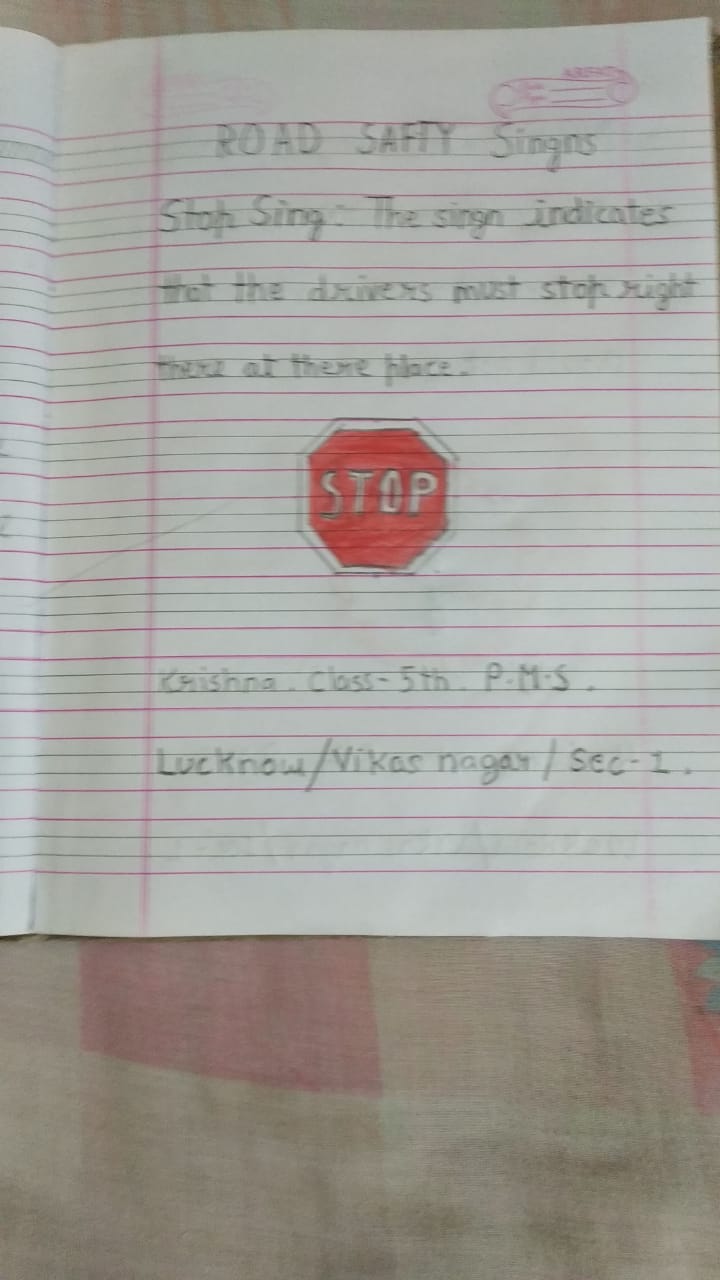 ROAD SAFTY Singns
Stop Sing: The singn indicates
that the drivers must stop right
there at there place.
STOP
Krishna. Class-5th. P.M.S.
Lucknow/Vikas nagar/Sec-1.